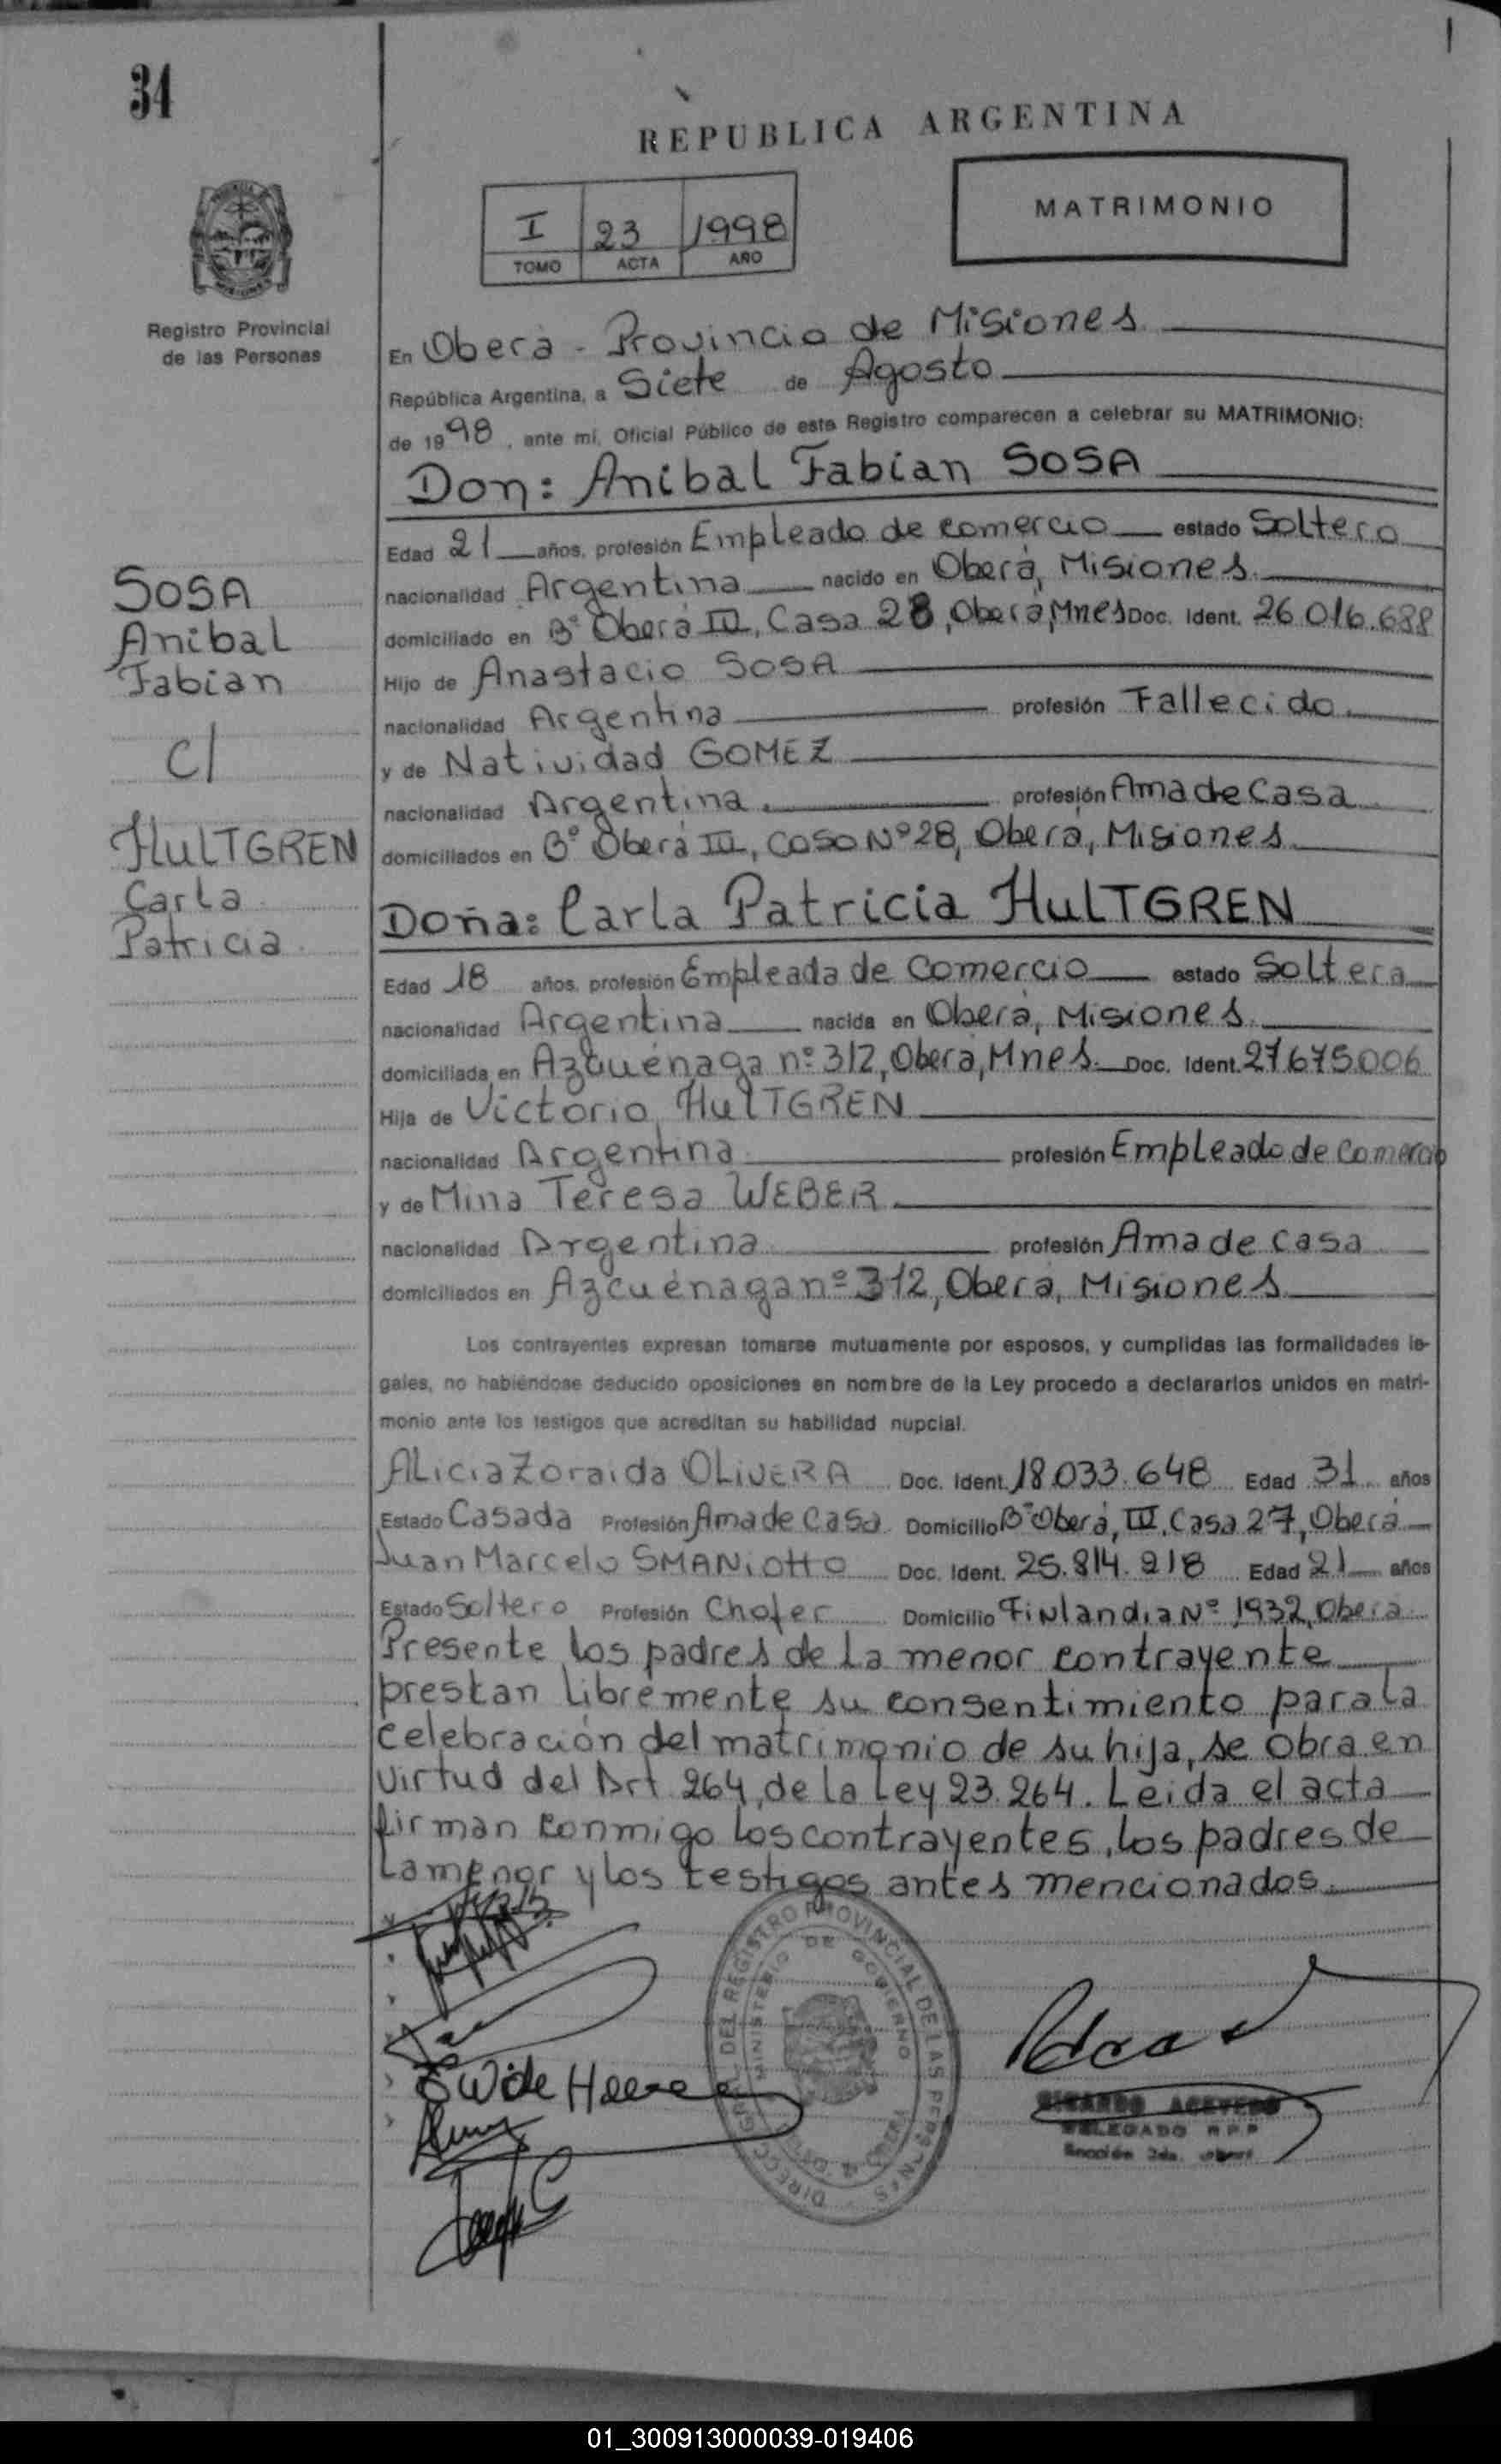 34
REPUBLICA ARGENTINA
MATRIMONIO
I 23 1998
TOMO ACTA AÑO
Registro Provincial
de las Personas
En Oberá - Provincia de Misiones
República Argentina, a Siete de Agosto
de 1998, ante mí, Oficial Público de este Registro comparecen a celebrar su MATRIMONIO:
Don: Anibal Fabian SOSA
Edad 21 años, profesión Empleado de comercio estado Soltero
nacionalidad Argentina nacido en Oberá, Misiones.
domiciliado en B° Oberá III, Casa 28, Oberá, Mnes Doc. Ident. 26.016.688
Hijo de Anastacio SOSA
nacionalidad Argentina profesión Fallecido.
y de Natividad GOMEZ
nacionalidad Argentina. profesión Ama de Casa
domiciliados en B° Oberá III, Casa N° 28, Oberá, Misiones
SOSA
Anibal
Fabian
C/
HULTGREN
Carla
Patricia
Doña: Carla Patricia HULTGREN
Edad 18 años, profesión Empleada de Comercio estado Soltera
nacionalidad Argentina nacida en Oberá, Misiones.
domiciliada en Azcuénaga n° 312, Oberá, Mnes. Doc. Ident. 27675.006
Hija de Victorio HULTGREN
nacionalidad Argentina profesión Empleado de Comercio
y de Mina Teresa WEBER
nacionalidad Argentina profesión Ama de Casa
domiciliados en Azcuénaga n° 312, Oberá, Misiones
Los contrayentes expresan tomarse mutuamente por esposos, y cumplidas las formalidades le-
gales, no habiéndose deducido oposiciones en nombre de la Ley procedo a declararlos unidos en matri-
monio ante los testigos que acreditan su habilidad nupcial.
Alicia Zoraida OLIVERA Doc. Ident. 18.033.648 Edad 31 años
Estado Casada Profesión Ama de Casa Domicilio B° Oberá, III, Casa 27, Oberá
Juan Marcelo SMANIOTTO Doc. Ident. 25.814.218 Edad 21 años
Estado Soltero Profesión Chofer Domicilio Finlandia N° 1932, Oberá.
Presente los padres de la menor contrayente
prestan libremente su consentimiento para la
celebración del matrimonio de su hija, se obra en
virtud del Art. 264, de la Ley 23.264. Leida el acta
firman conmigo los contrayentes, los padres de
la menor y los testigos antes mencionados.
DIRECC. GRAL. DEL REGISTRO PROVINCIAL DE LAS PERSONAS
MINISTERIO DE GOBIERNO
RICARDO ACEVEDO
DELEGADO R.P.P
Sección 2da.
01_300913000039-019406